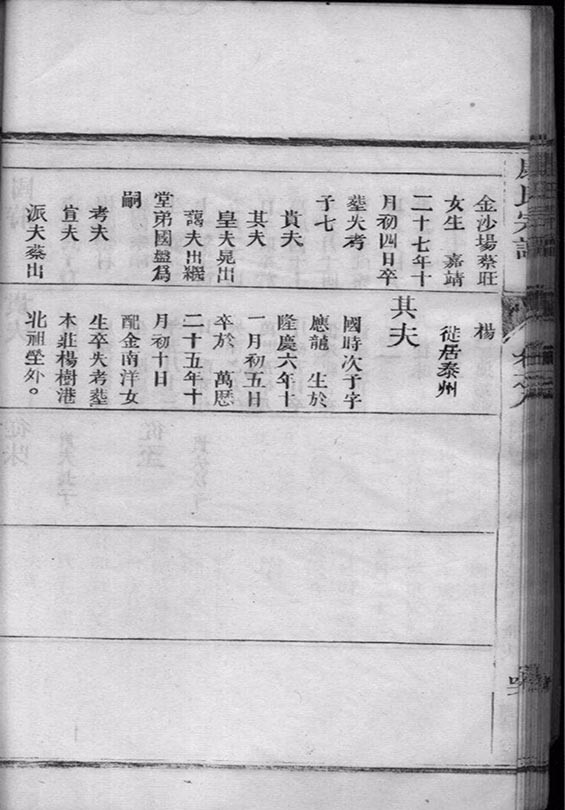 氏宗譜
金沙場蔡旺
女生 嘉靖
二十七年十
月初四日卒
塟失考
子七
貴夫
其夫
皇夫晃出
藹夫出繼
堂弟國盤為
嗣
考夫
宜夫
派夫蔡出
楊
徙居泰州
其夫
國時次子字
應龍 生於
隆慶六年十
一月初五日
卒於 萬厯
二十五年十
月初十日
配金南洋女
生卒失考塟
木莊楊樹港
北祖塋外。